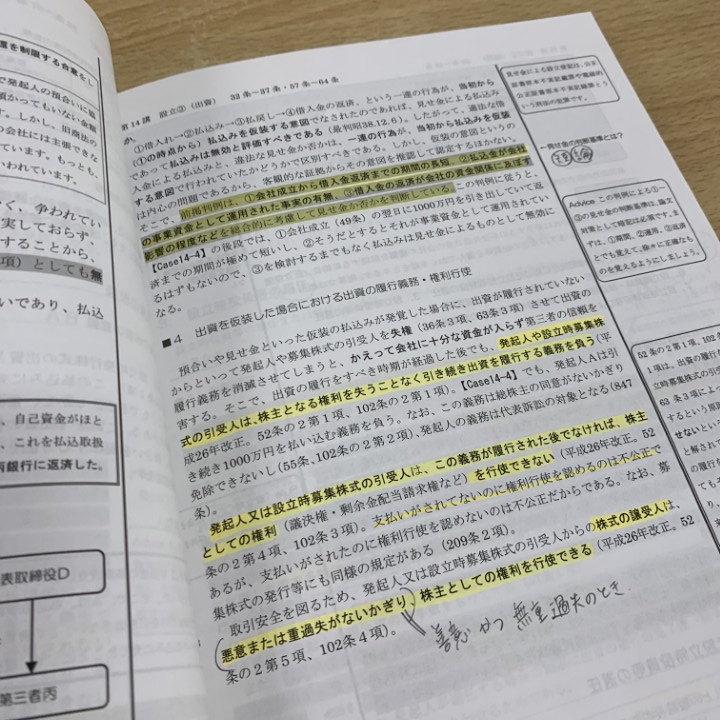 量を制限する合意をし
で発起人の預合いに協
預かってもいない金額
す。しかし、旧商法の
の会社には主張できな
ています。もっとも、
います。
なく、争われてい
実しておらず
することから、
項）としても無
いであり、払込
、自己資金がほと
、これを払込取扱
両銀行に返済した。
表取締役D
第三者丙
第14講 設立③（出資） 32条〜37条・57条〜64条
か。
①借入れ→②払込み→③払戻し→④借入金の返済、という一連の行為が、当初から
（①の時点から）払込みを仮装する意図でなされたのであれば、見せ金による払込み
であって払込みは無効と評価すべきである（最判昭38.12.6）。したがって、適法な借
入金による払込みと、違法な見せ金か否かは、一連の行為が、当初から払込みを仮装
する意図で行われていたかどうかで区別すべきである。しかし、仮装の意図というの
は内心の問題であるから、客観的な証拠からその意図を推認して認定するほかない。
そこで、前掲判例は、①会社成立から借入金返済までの期間の長短、②払込金が会社
の事業資金として運用された事実の有無、③借入金の返済が会社の資金関係に及ぼす
影響の程度などを総合的に考慮して見せ金か否かを判断している。この判例に従うと、
【Case14-4】の後段では、①会社成立（49条）の翌日に1000万円を引き出していて返
済までの期間が極めて短いし、②そうだとするとそれが事業資金として運用されてい
るはずもないので、③を検討するまでもなく払込みは見せ金によるものとして無効に
なる。
■4 出資を仮装した場合における出資の履行義務・権利行使
預合いや見せ金といった仮装の払込みが発覚した場合に、出資が履行されていない
からといって発起人や募集株式の引受人を失権（36条3項、63条3項）させて出資の
履行義務を消滅させてしまうと、かえって会社に十分な資金が入らず第三者の信頼を
害する。そこで、出資の履行をすべき時期が経過した後でも、発起人や設立時募集株
式の引受人は、株主となる権利を失うことなく引き続き出資を履行する義務を負う（平
成26年改正。52条の2第1項、102条の2第1項）。【Case14-4】でも、発起人は引
き続き1000万円を払い込む義務を負う。なお、この義務は総株主の同意がないかぎり
免除できないし（55条、102条の2第2項）、発起人の義務は代表訴訟の対象となる（847
条）。
発起人又は設立時募集株式の引受人は、この義務が履行された後でなければ、株主
としての権利（議決権・剰余金配当請求権など）を行使できない（平成26年改正。52
条の2第4項、102条3項）。支払いがされてないのに権利行使を認めるのは不公正で
あるが、支払いがされたのに権利行使を認めないのは不公正だからである。なお、募
集株式の発行等にも同様の規定がある（209条2項）。
取引安全を図るため、発起人又は設立時募集株式の引受人からの株式の譲受人は、
悪意または重過失がないかぎり、株主としての権利を行使できる（平成26年改正。52
条の2第5項、102条4項）。
善意かつ無重過失のとき
見せ金による設立登記は、公正
証書原本不実記載罪や電磁的
公正証書原本不実記録罪とい
う刑法の犯罪です。
←見せ金の判断基準とは?
Advice この判例による①〜
③の見せ金の判断基準は、論文
対策として暗記は必須です。ま
ずは、①期間、②運用、③返済
とでも覚えて、徐々に正確なも
のを覚えるようにしましょう。
52条の2第1項、102